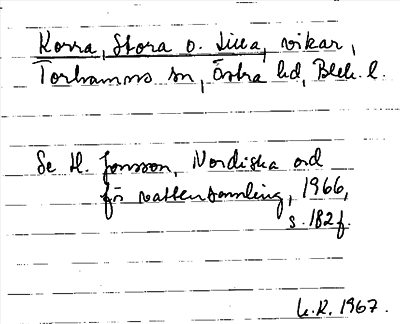 Korra, Stora o. Lilla, vikar,
Torhamns sn, Östra hd, Blek. l.
Se H. Jonsson, Nordiska ord
för vattensamling, 1966,
s. 182 f.
L.R. 1967.